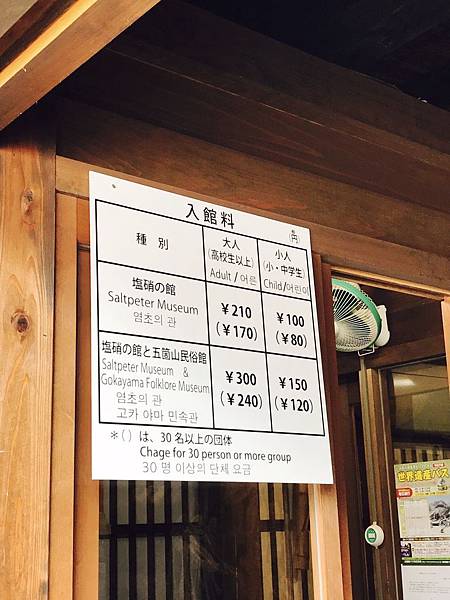 入館料 (円)
種 別
大人
(高校生以上)
Adult / 어른
小人
(小・中学生)
Child/어린이
塩硝の館
Saltpeter Museum
염초의 관
￥210
(￥170)
￥100
(￥80)
塩硝の館と五箇山民俗館
Saltpeter Museum &
Gokayama Folklore Museum
염초의 관
고카 야마 민속관
￥300
(￥240)
￥150
(￥120)
＊( ) は、30 名以上の団体
Chage for 30 person or more group
30 명 이상의 단체 요금
世界遺産バス